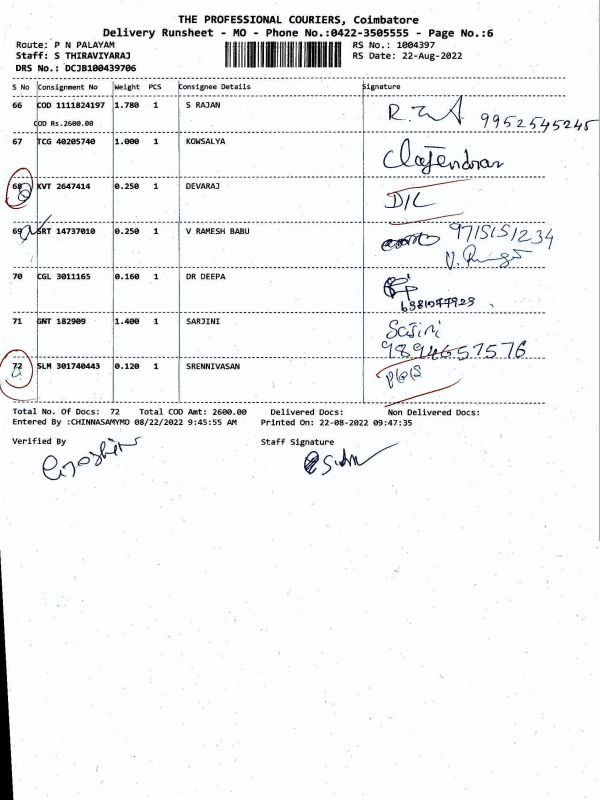 THE PROFESSIONAL COURIERS, Coimbatore
Delivery Runsheet - MO - Phone No.:0422-3505555 - Page No.:6
Route: P N PALAYAM RS No.: 1004397
Staff: S THIRAVIYARAJ RS Date: 22-Aug-2022
DRS No.: DCJB100439706
S No Consignment No Weight PCS Consignee Details Signature
66 COD 1111824197 1.780 1 S RAJAN 9952545245
COD Rs.2600.00
67 TCG 40205740 1.000 1 KOWSALYA
68 KVT 2647414 0.250 1 DEVARAJ D/L
69 SRT 14737010 0.250 1 V RAMESH BABU 9715151234
70 CGL 3011165 0.160 1 DR DEEPA
71 GNT 182909 1.400 1 SARJINI
9894657576
72 SLM 301740443 0.120 1 SRENNIVASAN
Total No. Of Docs: 72 Total COD Amt: 2600.00 Delivered Docs: Non Delivered Docs:
Entered By :CHINNASAMYMO 08/22/2022 9:45:55 AM Printed On: 22-08-2022 09:47:35
Verified By Staff Signature